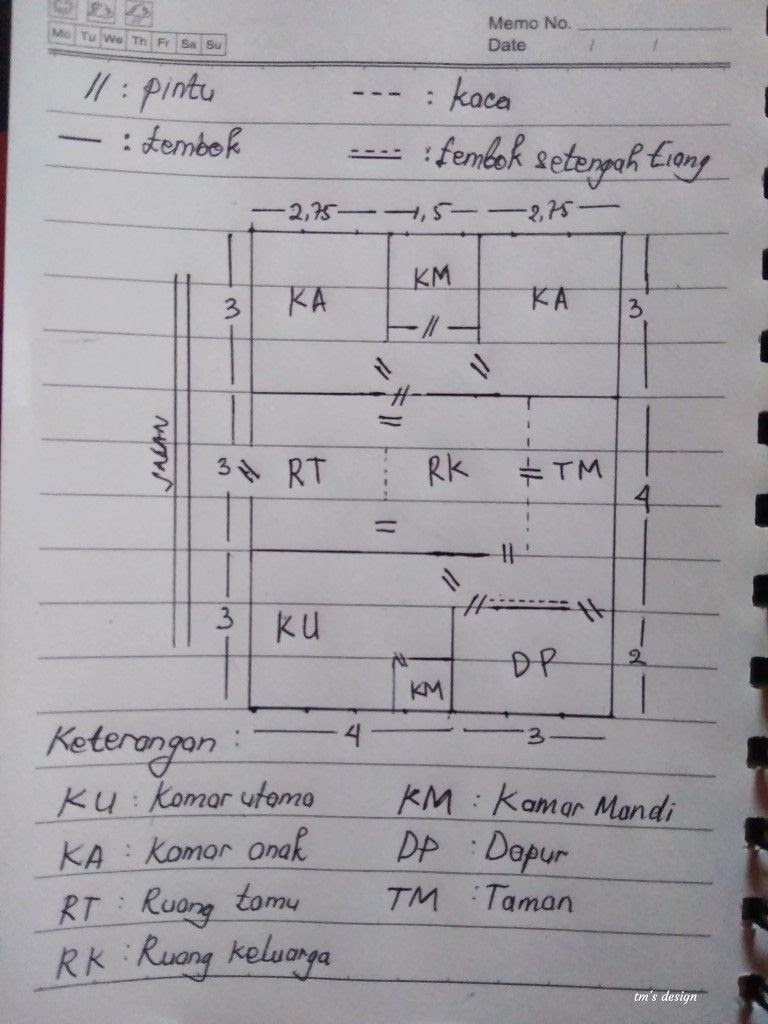 Memo No.
Mo Tu We Th Fr Sa Su
Date / /
// : pintu --- : kaca
— : tembok : tembok setengah tiang
2,75 1,5 2,75
3 KA KM KA 3
JALAN
3 RT RK TM 4
3 KU
KM DP 2
Keterangan : 4 3
KU : Kamar utama KM : Kamar Mandi
KA : Kamar anak DP : Dapur
RT : Ruang tamu TM : Taman
RK : Ruang keluarga
tm's design